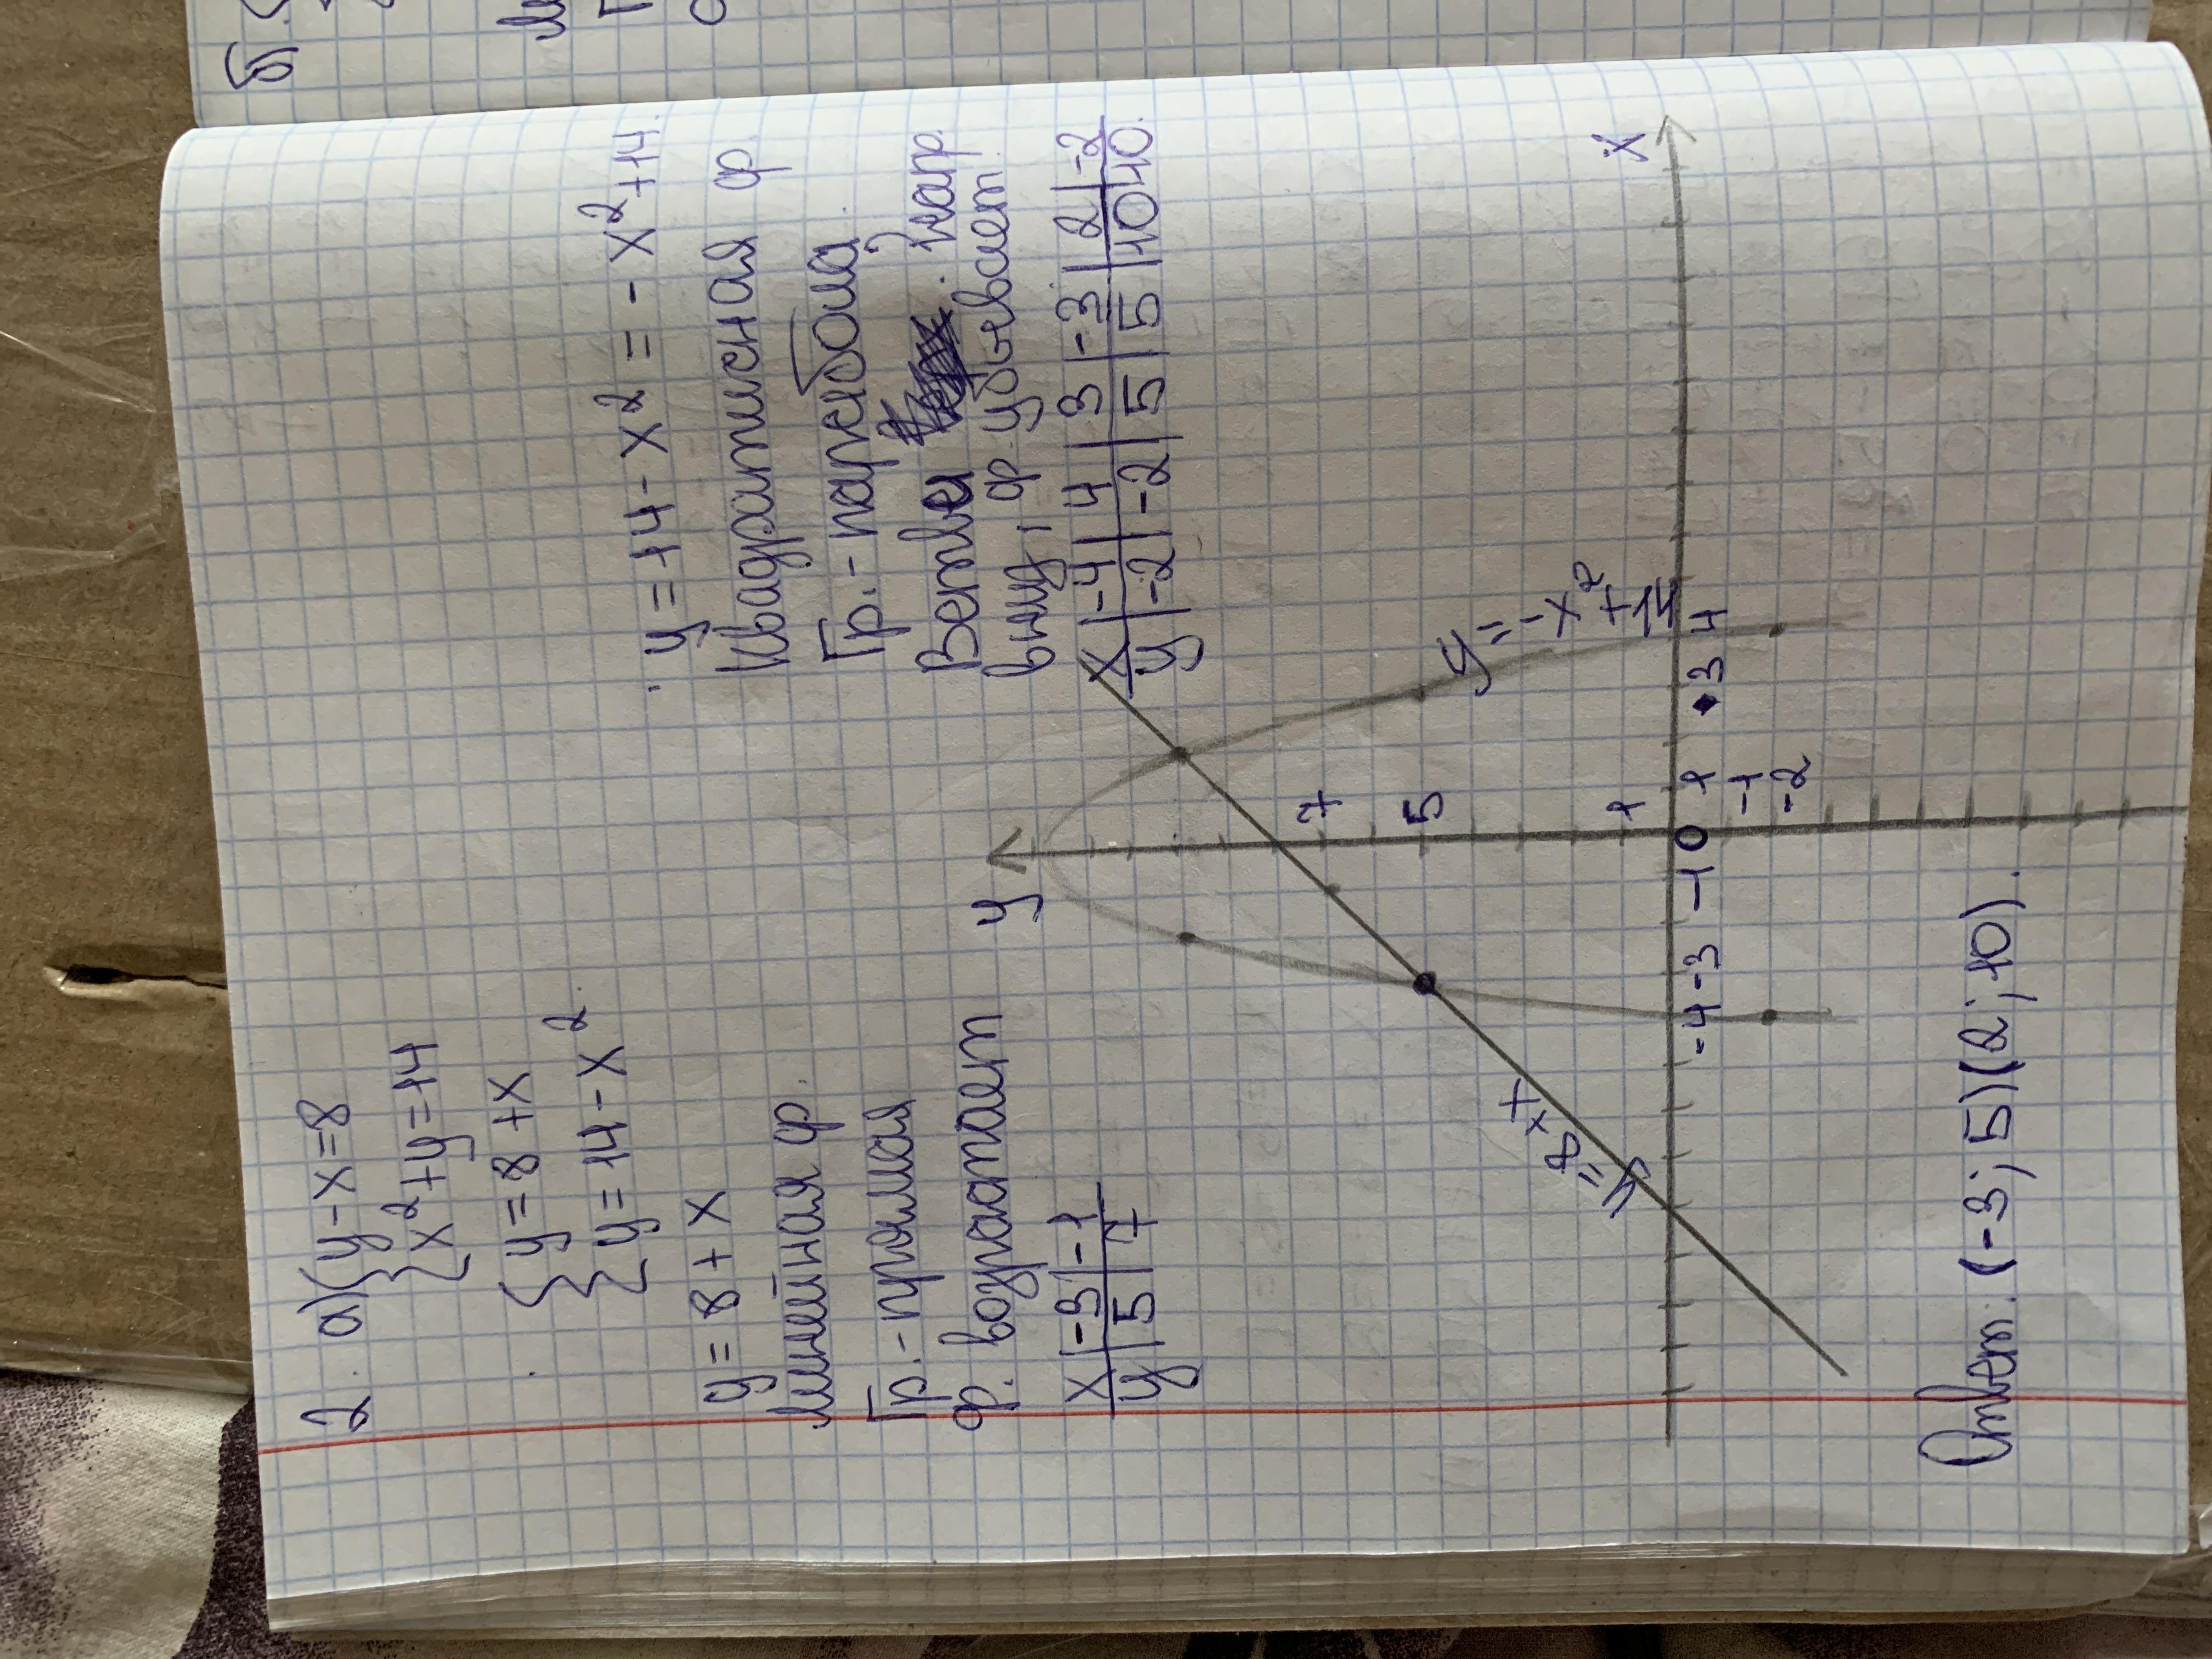 б).
2. а) { y - x = 8
{ x² + y = 14
{ y = 8 + x
{ y = 14 - x²
y = 8 + x
линейная ф.
Гр. - прямая
ф. возрастает
x | -3 | -1
y | 5 | 7
y = 14 - x² = - x² + 14.
Квадратисная ф.
Гр. - парабола.
Ветви напр.
вниз, ф. убывает.
x | -4 | 4 | 3 | -3 | 2 | -2
y | -2 | -2 | 5 | 5 | 10 | 10.
y
x
7
5
1
-4 -3 -1 0 1 3 4
-1
-2
y = 8 + x
y = - x² + 14
Ответ: (-3; 5) (2; 10).